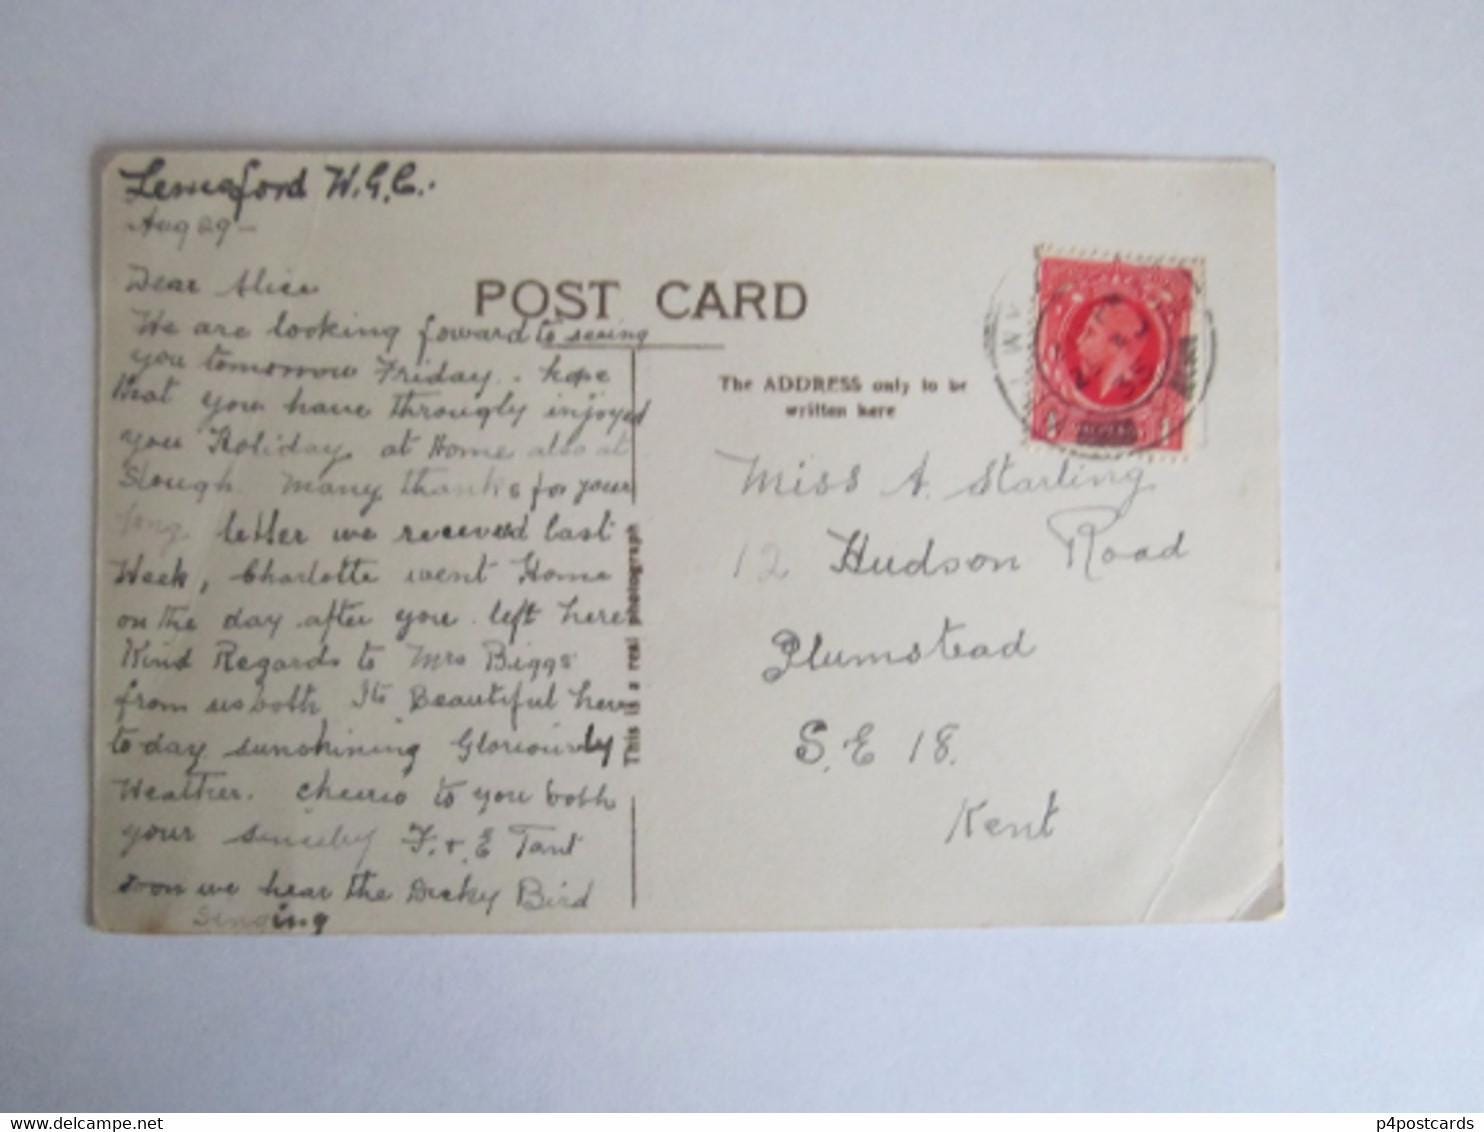 Lemsford W.G.C.
Aug 29 -
Dear Alice
We are looking foward to seeing
you tomorrow Friday. hope
that you have througly injoyed
you Holiday at Home also at
Slough. Many thanks for your
long letter we received last
Week, Charlotte went Home
on the day after you left here
Kind Regards to Mrs Biggs
from us both Its Beautiful here
to day sunshining Gloriously
Weather. cheerio to you both
your F. & E Tant
soon we hear the Dicky Bird
Singing
POST CARD
The ADDRESS only to be
written here
This is a real photograph
Miss A. Starling
12 Hudson Road
Plumstead
S.E 18.
Kent
delcampe.net
p4postcards